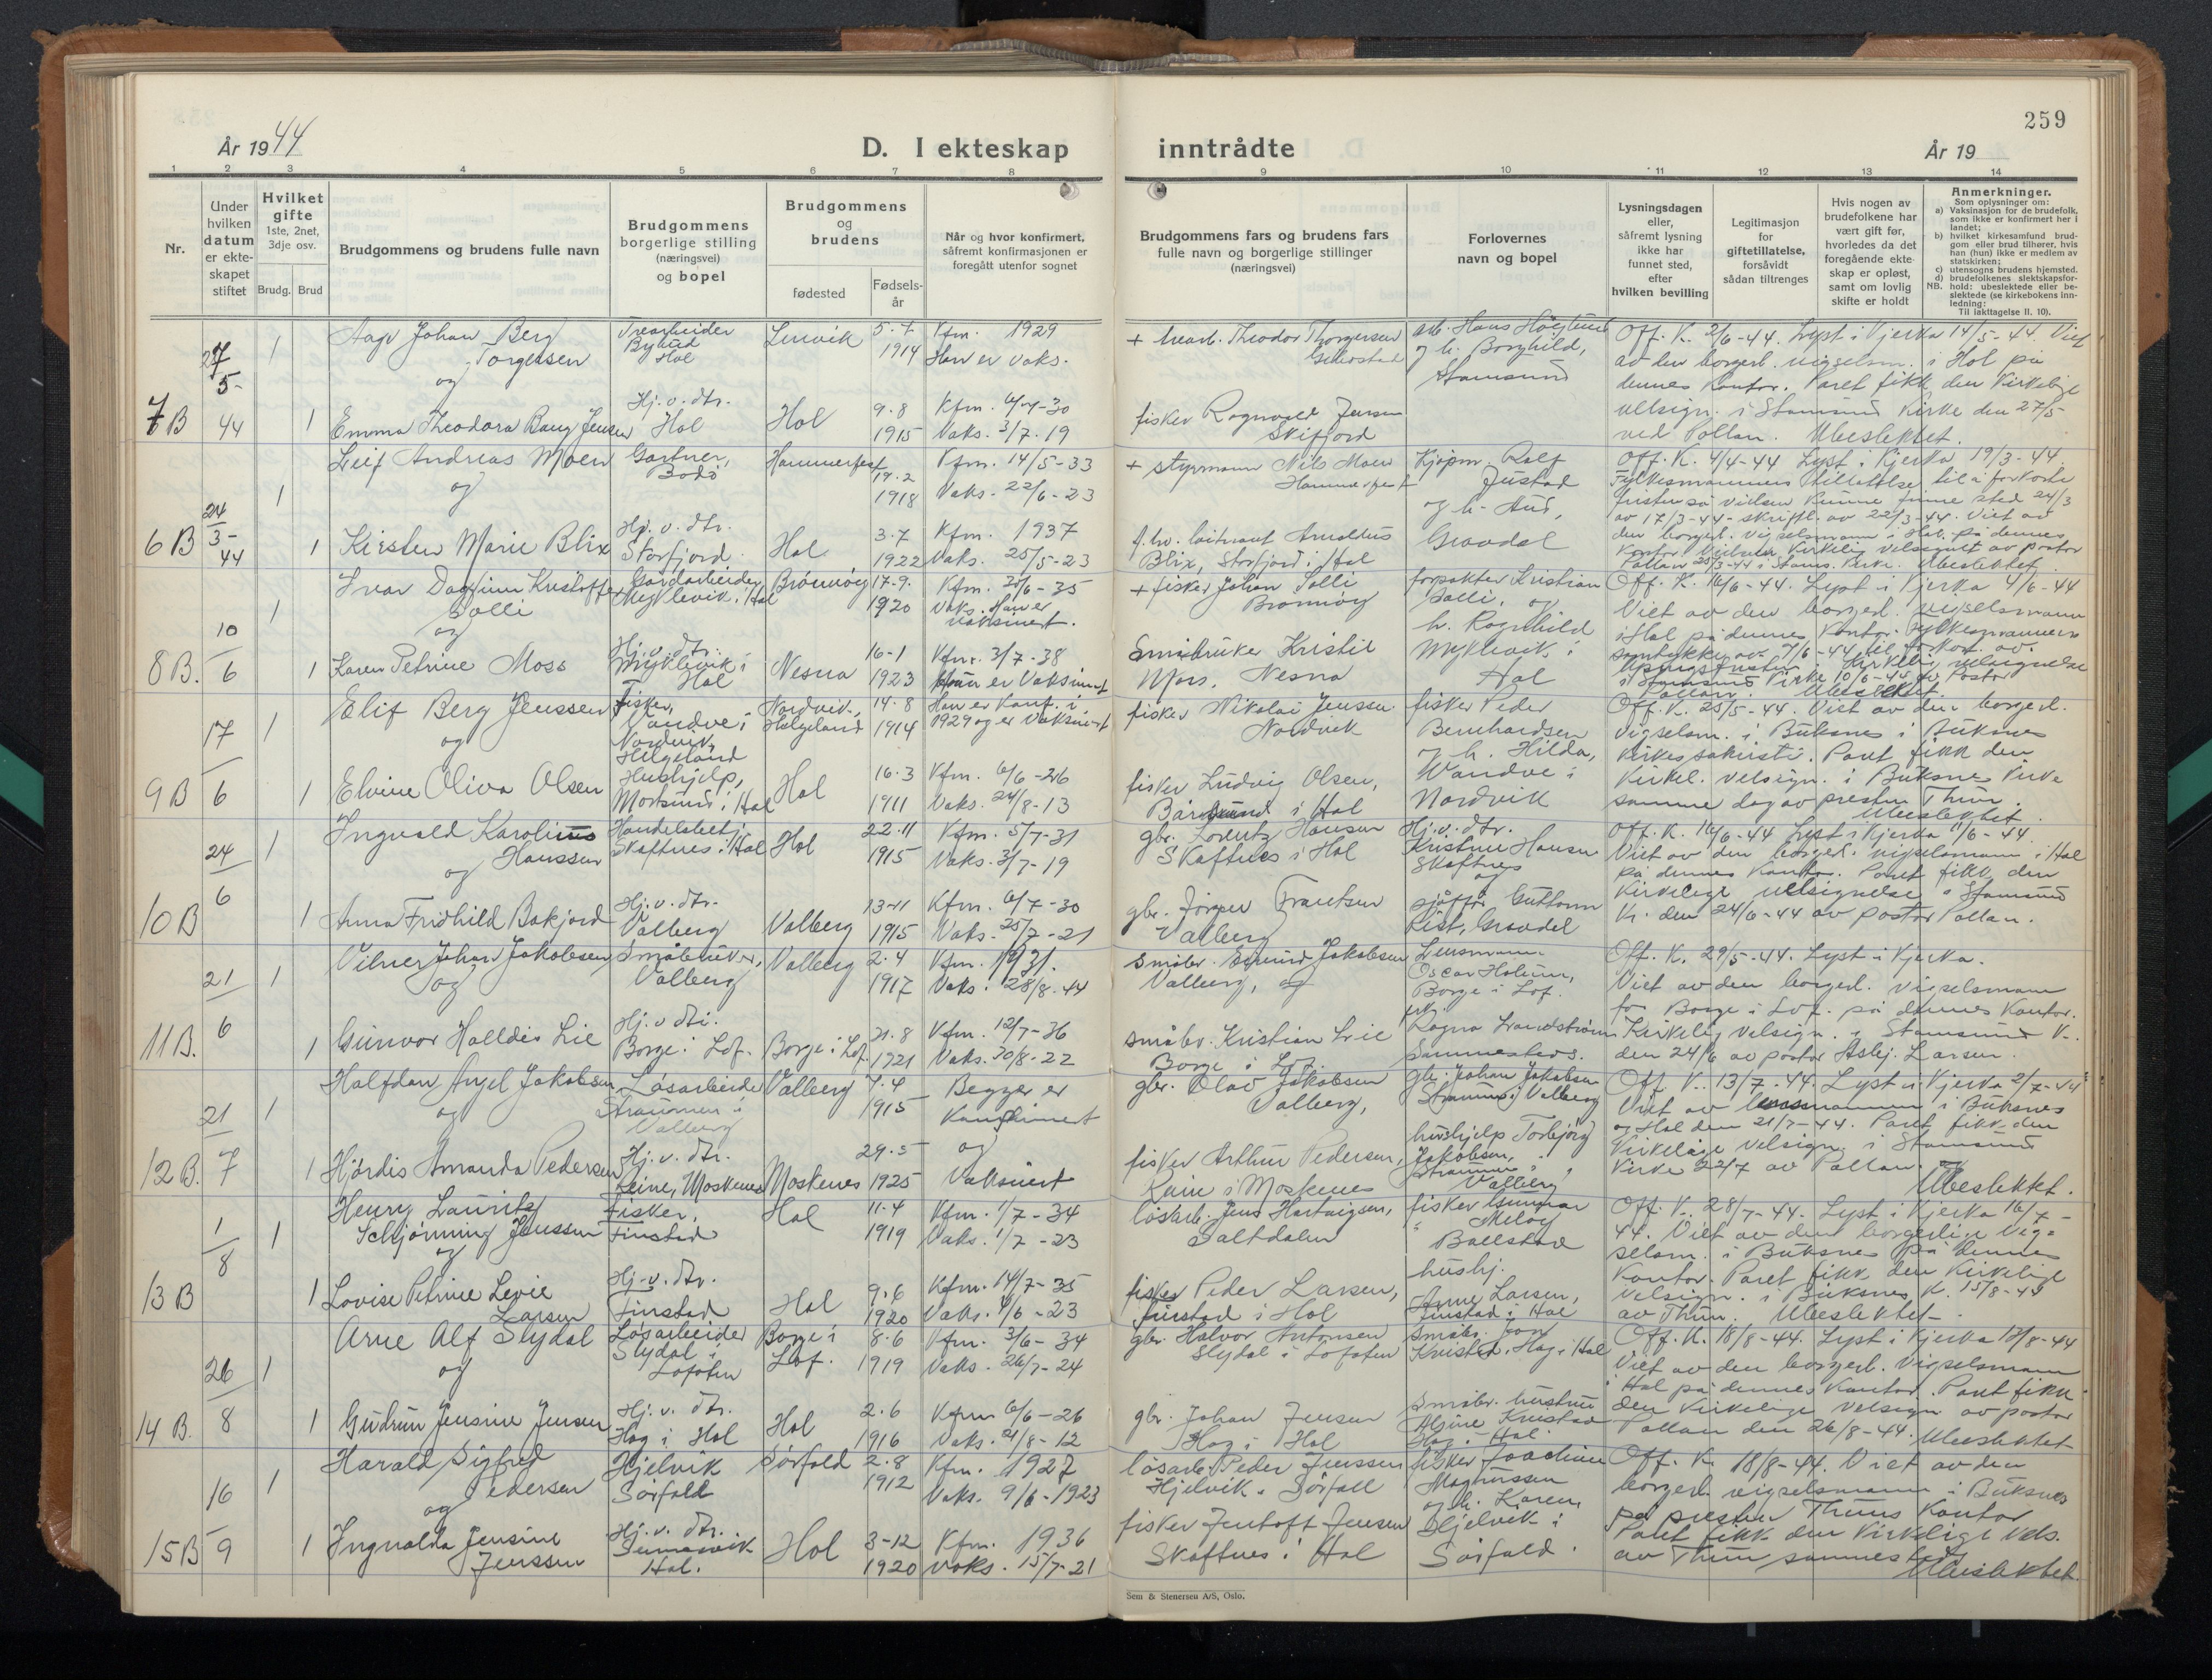 259
År 1944
D. I ekteskap inntrådte
År 19
1 2 3 4 5 6 7 8 9 10 11 12 13 14
Nr.
Under hvilken datum er ekteskapet stiftet
Hvilket gifte
1ste, 2net, 3dje osv.
Brudg. Brud
Brudgommens og brudens fulle navn
Brudgommens
borgerlige stilling
(næringsvei)
og bopel
Brudgommens
og
brudens
fødested
Fødselsår
Når og hvor konfirmert,
såfremt konfirmasjonen er
foregått utenfor sognet
Brudgommens fars og brudens fars
fulle navn og borgerlige stillinger
(næringsvei)
Forlovernes
navn og bopel
Lysningsdagen
eller,
såfremt lysning
ikke har
funnet sted,
efter
hvilken bevilling
Legitimasjon
for
giftetillatelse,
forsåvidt
sådan tiltrenges
Hvis nogen av
brudefolkene har
vært gift før,
hvorledes da det
foregående ekte-
skap er opløst,
samt om lovlig
skifte er holdt
Anmerkninger.
Som oplysninger om:
a) Vaksinasjon for de brudefolk,
som ikke er konfirmert her i
landet;
b) hvilket kirkesamfund brud-
gom eller brud tilhører, hvis
han (hun) ikke er medlem av
statskirken;
c) utensogns brudens hjemsted.
d) brudefolkenes slektskapsfor-
NB. hold: ubeslektede eller be-
slektede (se kirkebokens inn-
ledning:
Til iakttagelse II. 10).
7B
27/5-44
1
Aage Johan Berg
Torgersen
og
Trearbeider
Bylund
Hol
Lenvik
1914
Kfm. 1929
Han er vaks.
Theodor Thorgersen
og h. Borghild,
Stamsund
Off. K. 2/6-44. Lyst i Kjerka 14/5-44. Viet
av den borgerl. vigselsm. i Hol på
dennes Kontor. Paret fikk den Kirkelige
velsign. i Stamsund Kirke den 27/5
ved Pollan. Ubeslektet.
1
Emma Theodora Bang Jensen
Hj.v.dtr.
Hol
Hol
9.8
1915
Kfm. 6/7-30
Vaks. 3/7-19
fisker Ragnvald Jensen
Skifjord
6B
24/3-44
1
Leif Andreas Moen
og
Gartner,
Bodø
Hammerfest
19.2
1918
Kfm. 14/5-33
Vaks. 22/6-23
+ styrmann Nils Moen
Hammerfest
Kjøpm. Rolf
Justad
og h. Aud,
Gravdal
Off. K. 4/4-44 Lyst i Kjerka 19/3-44.
Fylkesmannens tillatelse til å forkorte
av 17/3-44 - skriftl. av 22/3-44. Viet av
den borgerl. vigselsmann i Hol på dennes
Kontor. Kirkelig velsignet av pastor
Pollan 25/3-44 i Stams. Kirke. Ubeslektet.
1
Kirsten Marie Blix
Hj.v.dtr.
Storfjord
Hol
3.7
1922
Kfm. 1937
Vaks. 25/5-23
Arnoldus
Blix, Storfjord i Hol
8B.
10/6
1
Ivar Dagfinn Kristoffer
Solli
og
Gårdarbeider
Myklevik i Hol
Brønnøy
17-9.
1920
Kfm. 20/6-35
Vaks. Han er
vaksinert.
+ fisker Johan Solli
Brønnøy
forpakter Kristian
Solli, og
h. Ragnhild
Myklevik i
Hol
Off. K. 16/6-44. Lyst i Kjerka 4/6-44
Viet av den borgerl. vigselsmann
i Hol på dennes Kontor. Fylkesmannens
samtykke av 7/6-44 til forkort. av
lysingsfristen. Kirkelig velsignelse
i Stamsund Kirke 10/6-44 av Pastor
Pollan. Ubeslektet.
1
Karen Petrine Moss
Hj.v.dtr.
Myklevik i
Hol
Nesna
16-1
1923
Kfm. 3/7-38
er Vaksinert
Småbruker Kristie
Nesna
9B
17/6
1
Elif Berg Jenssen
og
Fisker,
Vandve i
Nordvik,
Helgeland
Nordvik,
Helgeland
14.8
1914
Han er Konf. i
1929 og er Vaksinert
fisker Nikolai Jenssen
Nordvik
fisker Peder
Bernhardsen
og h. Hilda,
Vandve i
Nordvik
Off. K. 25/5-44. Viet av den borgerl.
vigselsm. i Buksnes i Buksnes
Kirkes sakristi. Paret fikk den
Kirkel. velsign. i Buksnes Kirke
samme dag av presten Thun.
Ubeslektet.
1
Elvine Oliva Olsen
Hushjelp,
Mortsund i Hol
Hol
16.3
1911
Kfm. 6/6-26
Vaks. 24/8-13
fisker Ludvig Olsen,
i Hol
10B
24/6
1
Ingvald Karolius
Hanssen
og
Handelsbetj.
Skaftnes i Hol
Hol
22.11
1915
Kfm. 5/7-31
Vaks. 3/7-19
gbr. Lorentz Hansen
Skaftnes i Hol
Hj.v.dtr.
Kristine Hansen
Skaftnes
og
sjåfør Guttorm
List, Gravdal
Off. K. 16/6-44 Lyst i Kjerka 11/6-44.
Viet av den borgerl. vigselsmann i Hol
på dennes Kontor. Paret fikk den
Kirkelige velsignelse i Stamsund
K. den 24/6-44 av pastor Pollan.
1
Anna Fridhild Bakjord
Hj.v.dtr.
Valberg
Valberg
13-11
1915
Kfm. 6/7-30
Vaks. 25/7-21
gbr. Jørgen Frantsen
Valberg
11B.
21/6
1
Vilner Johan Jakobsen
og
Småbruker,
Valberg
Valberg
2.4
1917
Kfm. 1931.
Vaks. 28/8-44
Småbr. Edmund Jakobsen
Valberg, og
Lensmann
Oscar Holum,
Borge i Lof.
Ragna Strandstrøm
Sammesteds.
Off. K. 29/5-44. Lyst i Kjerka.
Viet av den borgerl. vigselsmann
for Borge i Lof. på dennes Kontor.
Kirkelig velsign. i Stamsund K.
den 24/6 av pastor Asbj. Larsen.
1
Gunvor Halldis Lie
Hj.v.dtr.
Borge i Lof.
Borge i Lof.
21.8
1921
Kfm. 12/7-36
Vaks. 30/8-22
småbr. Kristian Lie
Borge i Lof.
12B.
21/7
1
Halfdan Angel Jakobsen
og
Løsarbeider
Straumen i
Valberg
Valberg
7.4
1915
Begge er
Konfirmert
og
Vaksinert
gbr. Olav Jakobsen
Valberg,
gbr. Johan Jakobsen
Straumen i Valberg
hushjelp Torbjørg
Jakobsen,
Straumen i
Valberg
Off. K. 13/7-44. Lyst i Kjerka 2/7-44
Viet av lensmannen i Buksnes
og Hol den 21/7-44. Paret fikk den
Kirkelige velsign. i Stamsund
Kirke 22/7 av Pollan.
Ubeslektet.
1
Hjørdis Amanda Pedersen
Hj.v.dtr.
Reine, Moskenes
Moskenes
29.5
1925
fisker Arthur Pedersen,
Reine i Moskenes
13B
1/8
1
Henry Lauritz
Schjønning Jenssen
og
Fisker,
Finstad
Hol
11.4
1919
Kfm. 1/7-34
Vaks. 1/7-23
løsarb. Jens Hartvigsen,
Saltdalen
fisker Gunnar
Meløy
Ballstad
hushj.
Anne Larsen,
Finstad i Hol
Off. K. 28/7-44. Lyst i Kjerka 16/7-
44. Viet av den borgerlige vig=
selsm. i Buksnes på dennes
Kontor. Paret fikk den Kirkelige
velsign. i Buksnes K. 15/8-44
av Thun. Ubeslektet.
1
Lovise Petrine Levie
Larsen
Hj.v.dtr.
Finstad
Hol
9.6
1920
Kfm. 14/7-35
Vaks. 4/6-23
fisker Peder Larsen,
Finstad i Hol
14B.
26/8
1
Arne Alf Slydal
og
Løsarbeider
Slydal i
Lofoten
Borge i
Lof.
8.6
1919
Kfm. 3/6-34
Vaks. 26/7-24
gbr. Halvor Antonsen
Slydal i Lofoten
Småbr. Jon
Kristad, Hag i Hol
Småbr. hustru
Aline Kristad
Hag i Hol.
Off. K. 18/8-44. Lyst i Kjerka 13/8-44
Viet av den borgerl. vigselsmann
i Hol på dennes Kontor. Paret fikk
den Kirkelige velsign. av pastor
Pollan den 26/8-44. Ubeslektet
1
Gudrun Jensine Jensen
Hj.v.dtr.
Hag i Hol
Hol
2.6
1916
Kfm. 6/6-26
Vaks. 21/8-12
gbr. Johan Jensen
Hag i Hol
15B
16/9
1
Harald Sigfred
Pedersen
og
Hjelvik
Sørfold
Sørfold
2.8
1912
Kfm. 1927
Vaks. 9/6-1923
løsarb. Peder Jenssen
Hjelvik. Sørfold
fisker Joachim
Magnussen
og h. Karen,
Hjelvik i
Sørfold.
Off. K. 18/8-44. Viet av den
borgerl. vigselsmann i Buksnes
på presten Thuns Kontor
Paret fikk den Kirkelige Vels.
av Thun sammesteds
Ubeslektet.
1
Ingvalda Jensine
Jenssen
Hj.v.dtr.
Hol.
Hol
3-12
1920
Kfm. 1936
Vaks. 15/7-21
fisker Jentoft Jensen
Skaftnes i Hol
Sem & Stenersen A/S, Oslo.